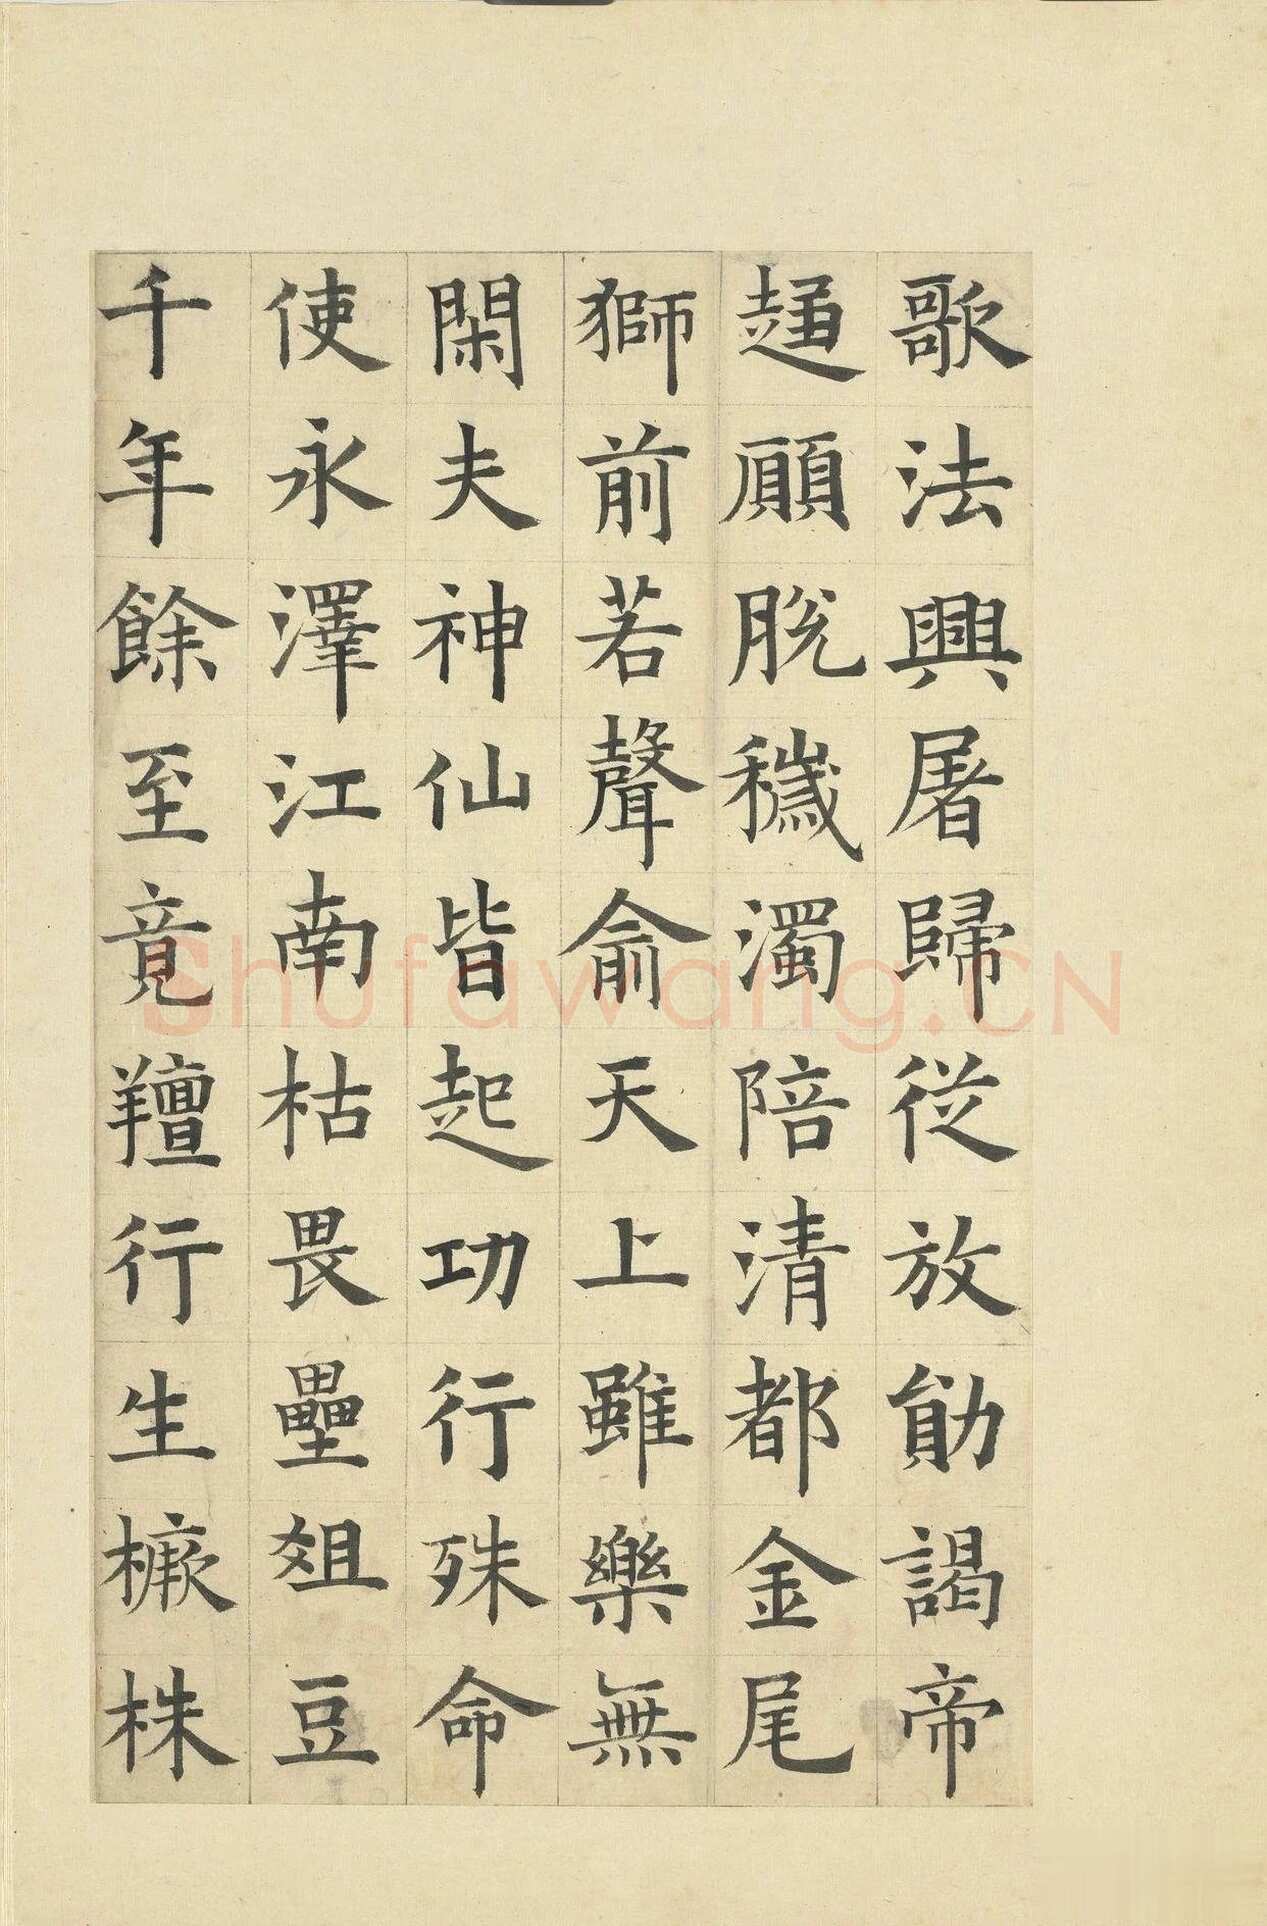 歌法興屠歸從放勛謁帝
趨願脫穢濁陪清都金尾
獅前若聲俞天上雖樂無
閑夫神仙皆起功行殊命
使永澤江南枯畏壘爼豆
千年餘至竟羶行生橛株
Shufawang.CN